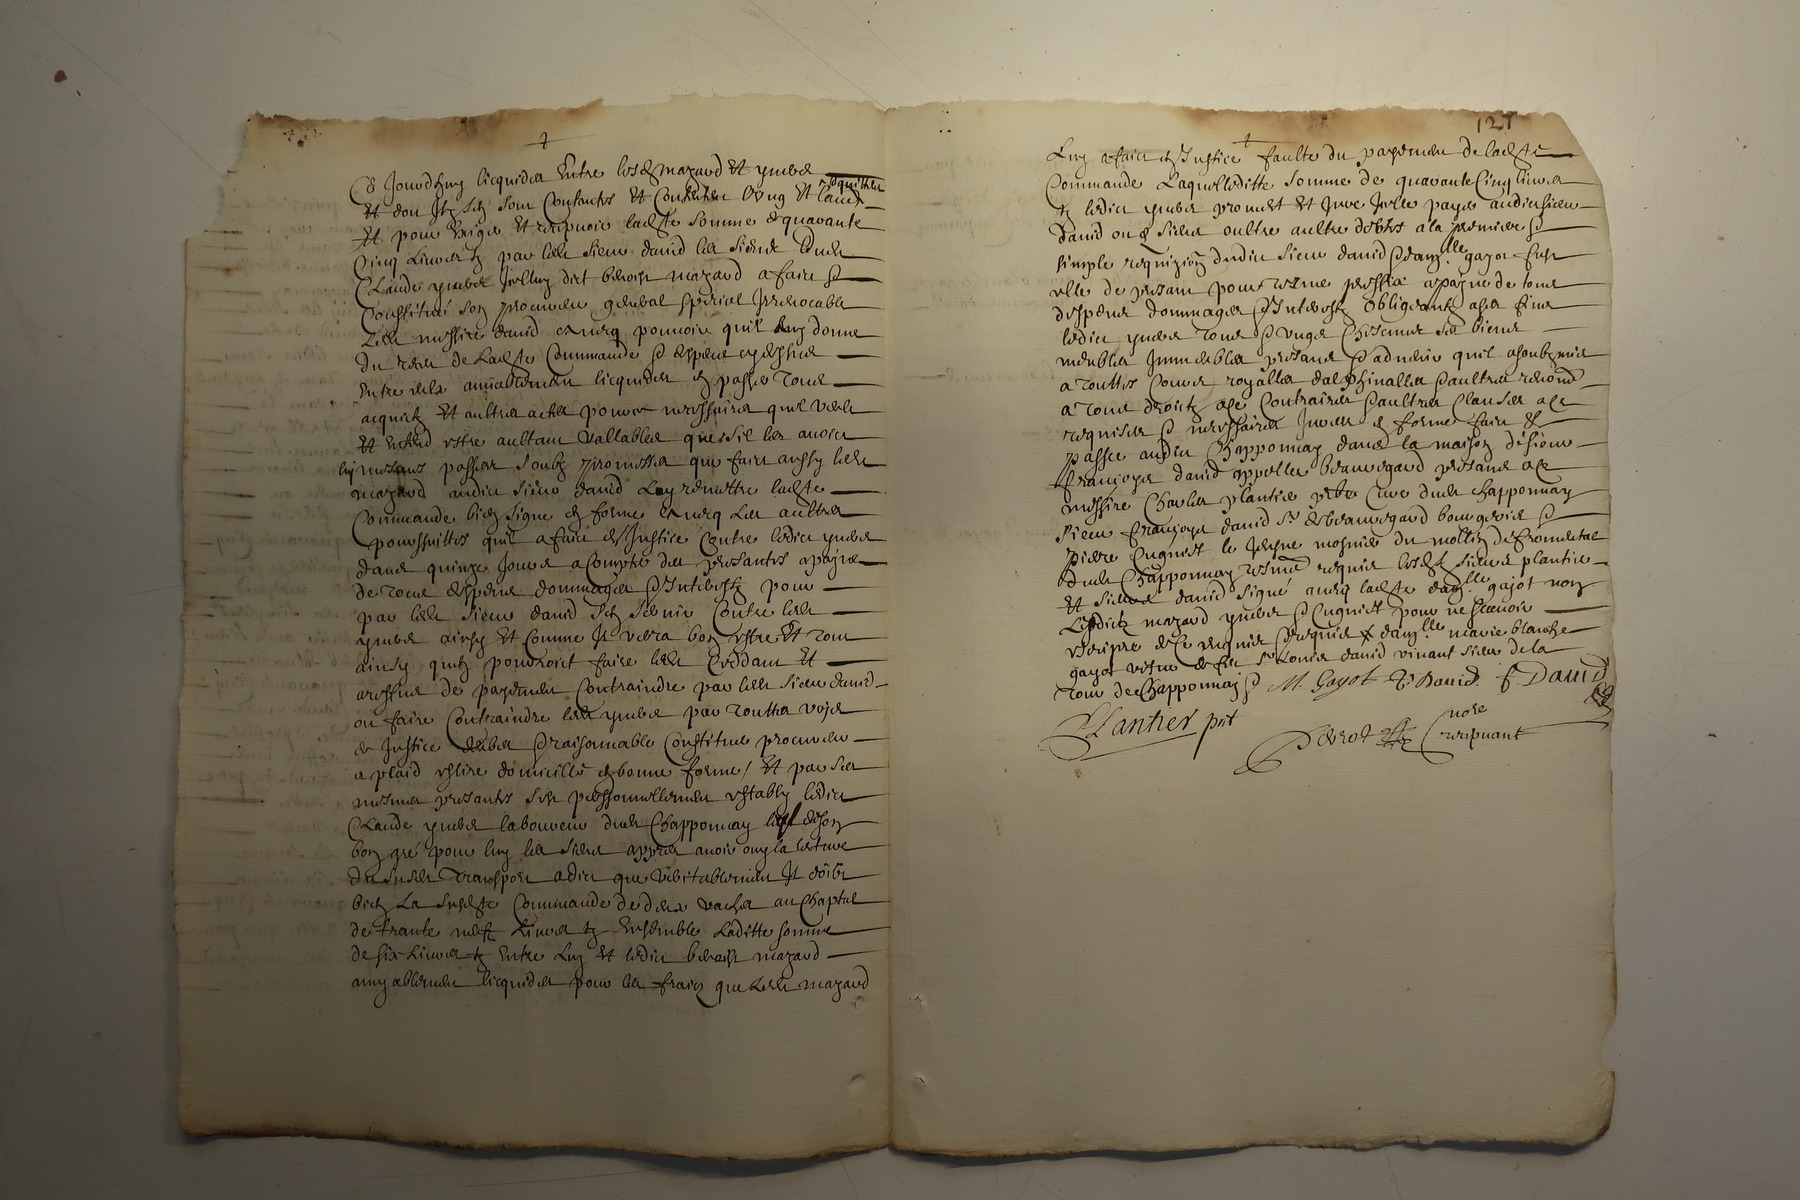 Ce Jourdhuy licquidés Entre lesd mazard Et ymber
Et don Ilz se sont Contantés Et Contentent L'ung Et l'autre acquitter
Et pour Exiger Et recepvoir ladte somme de quarante
Cinq Livres tz par led sieur david led sieur Benoit
Claude ymber Icelluy dict benoist mazard a faict &
Constitué son procureur general special Irrevocable
Led messire david avecq pouvoir quil luy donne
Du reste de Ladte Commande & despens expressement
Entre eulx amiablement licquidés & passer tous
acquictz Et aultres actes pouvoir necessaires quil veult
Et Entend estre aultant vallables que sil les avoict
luy mesmes passés soubz promesse que faict aussy led
mazard audict sieur david Luy remettre ladte
Commande bien signe & forme avecq Les aultres
poursuittes quil a faict en Justice Contre ledict ymber
dans quinze Jours a Compter des presantes a payne
de tous despens dommages & Interestz pour
par led sieur david s'en servir Contre led
ymber ainsy Et Comme Il verra bon estre Et tout
ainsy quil pourroict faire led Ceddant Et
a reffus de payement Contraindre par led sieur david
ou faire Contraindre led ymber par touttes voyes
de Justice deubes & raisonnable Constituer procureur
a plaid eslire domicille & bonne forme / Et par ses
mesmes presantes s'est personnellement estably ledict
Claude ymber laboureur dud Chapponnay lequel de son
bon gré pour luy les siens appres avoir ouy la lecture
du susdt Transport a dict que veritablement Il doibt
bien La susdte Commande de deux vaches au Chaptal
de trante neuf Livres tz Ensemble Laditte somme
de six Livres tz Entre Luy Et ledict benoist mazard
amyablement licquidés pour les fraiz que Led mazard
127
Luy a faict en Justice faulte du payement de ladte
Commande Laquelle ditte somme de quarante Cinq livres
tz ledict ymber promet Et Jure Icelle payer audict sieur
david ou es siens oultre aultre debtes a la premiere &
simple requizion dudict sieur david & damlle gayot fem
elle de presant pour terme prefix a payne de tous
despens dommages & Interestz Obligeant a ses fins
ledict ymber tous & ungs Chescuns ses biens
meubles Immeubles presans & advenir quil a soubzmis
a touttes Cours royalles dalphinalles & aultres renonce
a tous droictz a ce Contraires & aultres Clauses a ce
requises & necessaires Jurees & forme faict &
passé audict Chapponnay dans la maison de sieur
Françoys david appellee beauregard presans a ce
messire Charles plantier pbre Cure dud Chapponnay
sieur Françoys david sr de beauregard bourgeois &
pierre Cugniet le Jeune mosnier du mollin de Fromental
dud Chapponnay tesmo requis lesd sieurs plantier
Et sieurs david signé avecq ladte damlle gayot non
Lesdictz mazard ymber & Cugniet pour ne scavoir
escripre de ce requis & requis & damlle marie blanche
gayot vefve de feu sr Louis david vivant sieur de la
Tour de Chapponnay & M. Gayot C. Dauid. f. Dauid
Plantier pnt
nore
recepuant